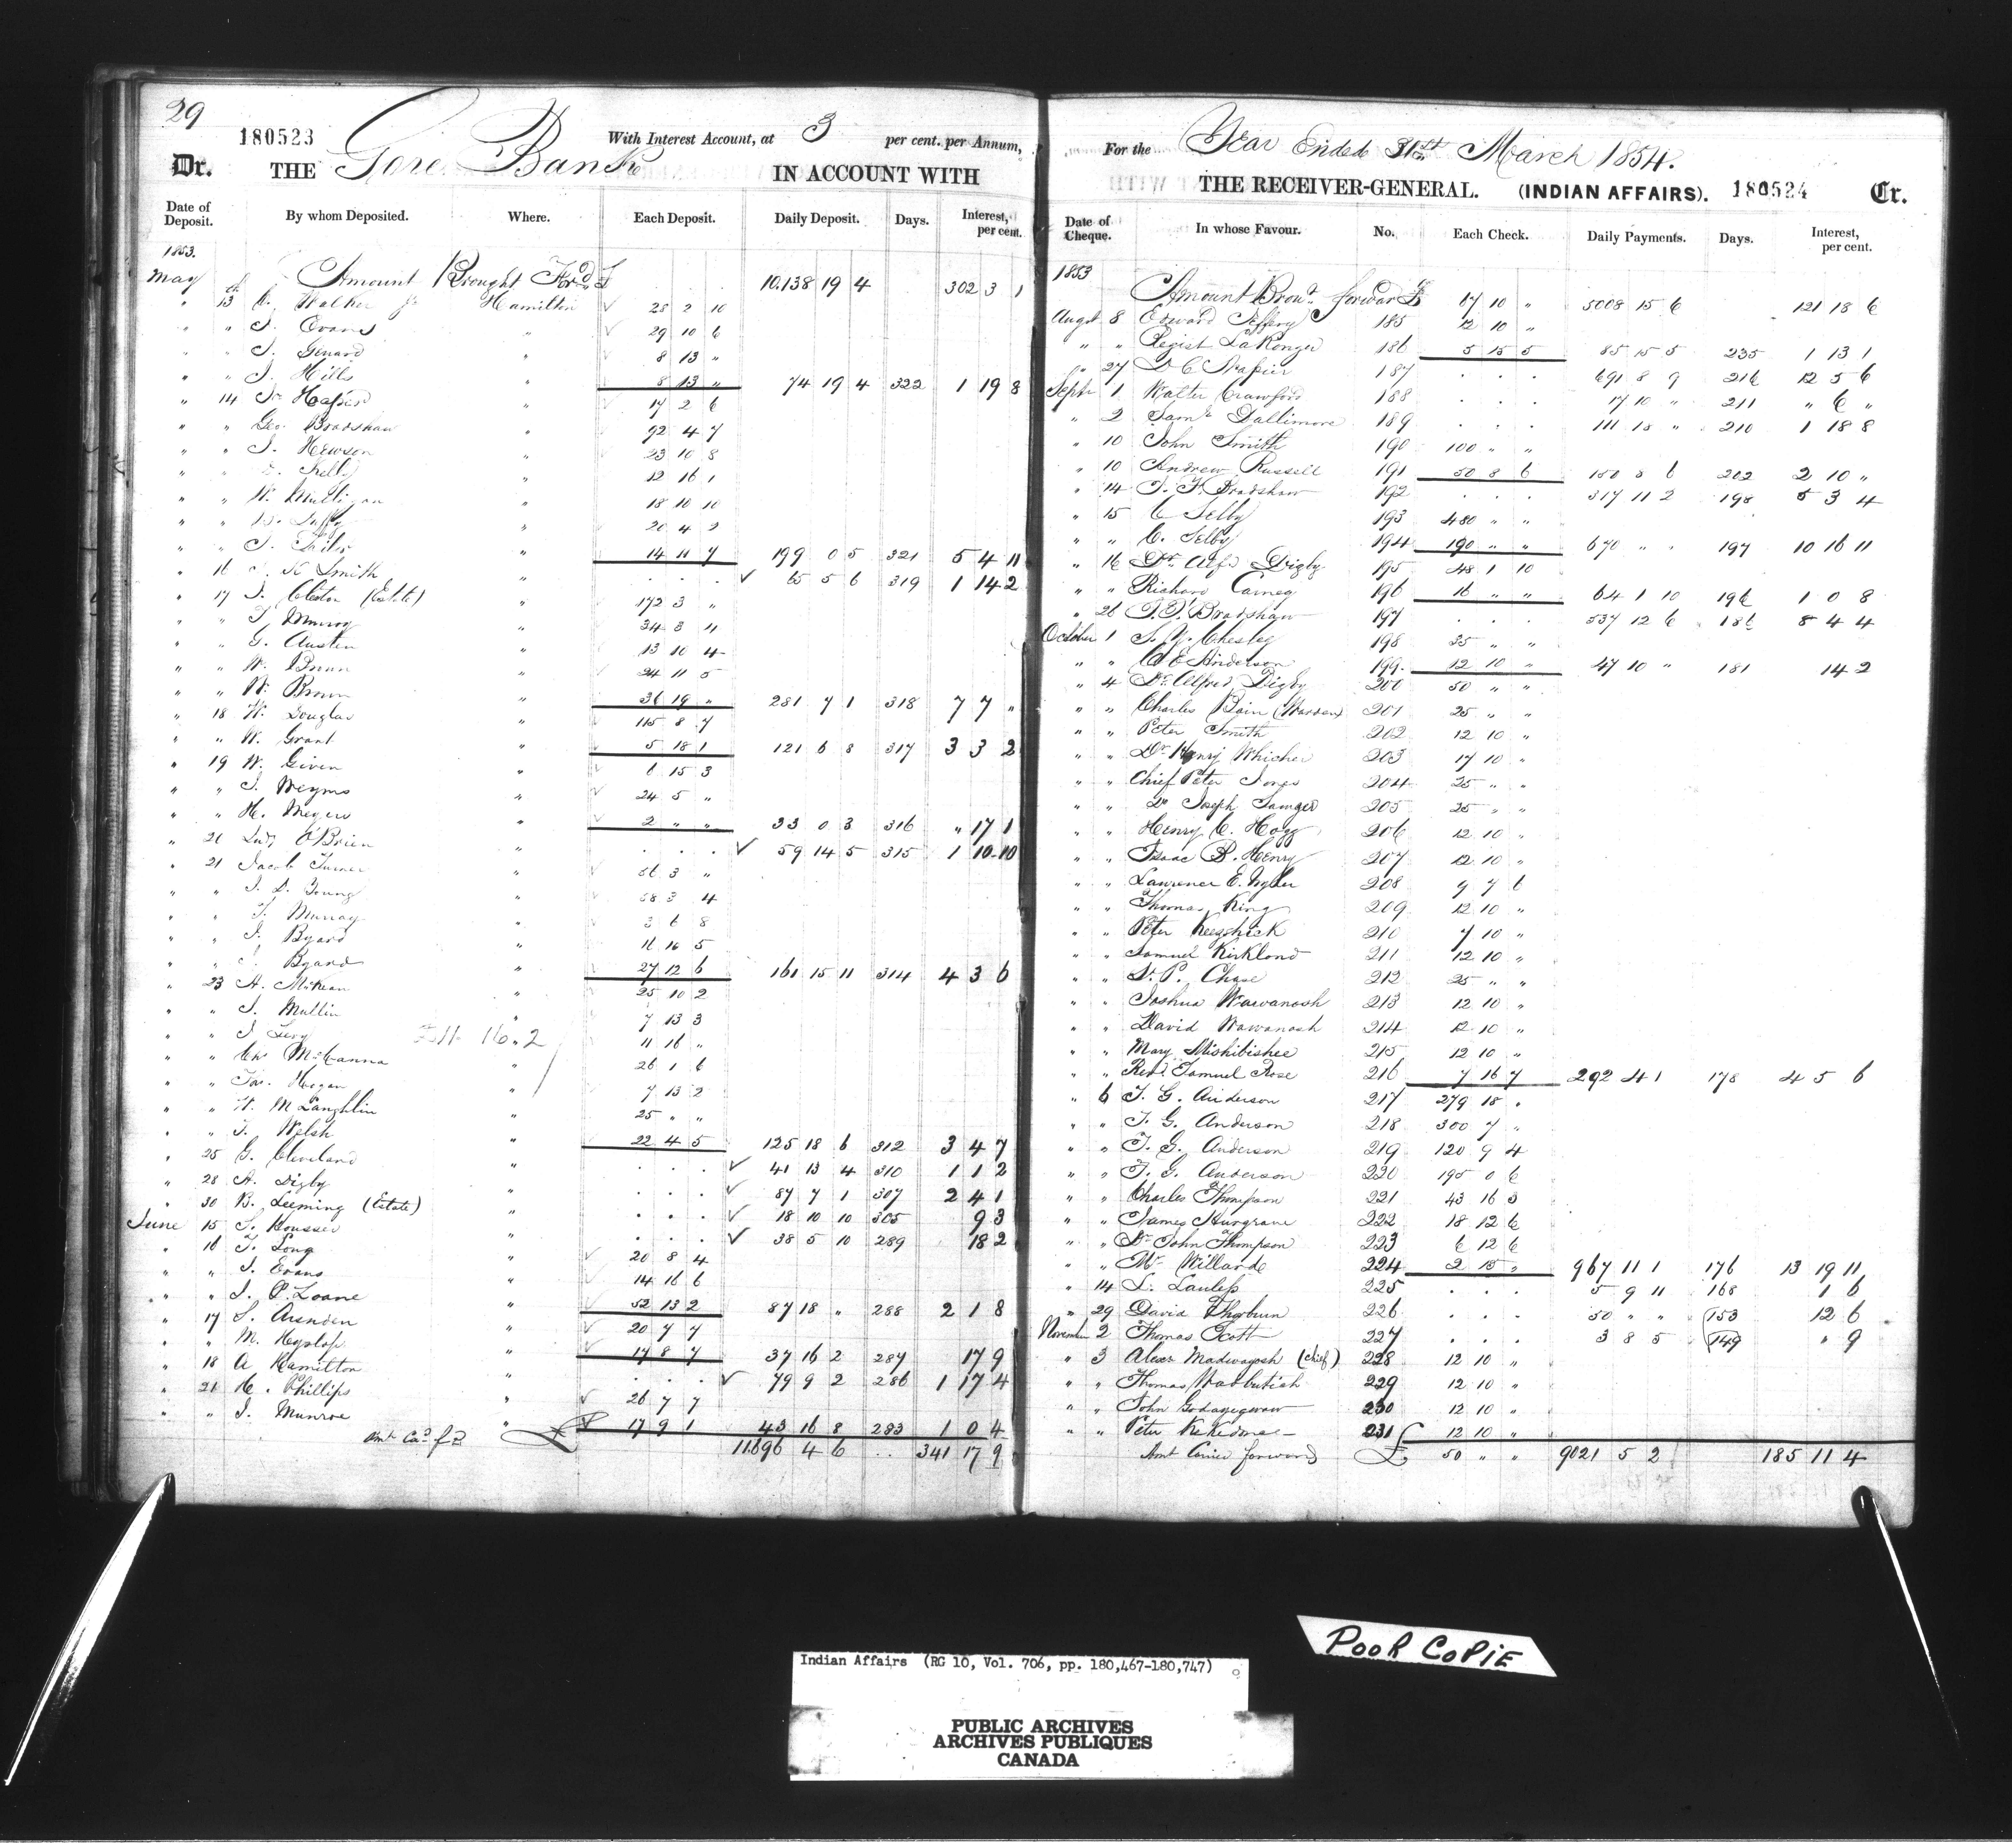 29
180523
With Interest Account, at 3 per cent. per Annum,
Dr. THE Gore Bank IN ACCOUNT WITH
Date of Deposit. By whom Deposited. Where. Each Deposit. Daily Deposit. Days. Interest, per cent.
1853.
May Amount Brought Ford £ 10.138 19 4 302 3 1
" 13th Walker Jr Hamilton 25 2 10
" " J. Evans " 29 10 6
" " J. " 8 13 "
" " J. Hills " 8 13 " 74 19 4 322 1 19 8
" 14 " 17 2 6
" " Geo. Bradshaw " 92 4 7
" " J. Hewson " 23 10 8
" " Kelly " 12 16 1
" " W. Mulligan " 18 10 10
" " " 20 4 2
" " J. " 14 11 7 199 0 5 321 5 4 11
" 16 Smith " 65 5 6 319 1 14 2
" 17 J. (Estate) " 172 3 "
" " T. Munroy " 34 8 11
" " G. Austin " 13 10 4
" " W. Brown " 24 11 5
" " W. Brown " 36 19 " 281 7 1 318 7 7 "
" 18 W. Douglas " 115 8 7
" " W. Grant " 5 18 1 121 6 8 317 3 3 2
" 19 W. Given " 6 15 3
" " J. Weyms " 24 5 "
" " H. Meyers " 2 " " 33 0 3 316 " 17 1
" O'Brien " 59 14 5 315 1 10 10
" 21 Jacob Turner " 3 "
" " J. D. Young " 58 3 4
" " T. Murray " 3 6 8
" " J. Byard " 16 5
" " Byard " 27 12 6 161 15 11 314 4 3 6
" 23 A. McKean " 25 10 2
" " J. Mullin " 7 13 3
" " J. Levy 16.2 " 11 16 "
" " Chs McCanna " 26 1 6
" " Jas. Hogan " 7 13 2
" " H. McLaughlin " 25 " "
" " J. Welsh " 22 4 5 125 18 6 312 3 4 7
" 25 G. Cleveland " 41 13 4 310 1 1 2
" 28 A. Digby " 87 7 1 307 2 4 1
" 30 B. Leeming (Estate) " 18 10 10 305 9 3
June 15 J. Housser " 38 5 10 289 18 2
" 16 T. Long " 20 8 4
" " J. Evans " 14 16 6
" " J. P. Loane " 52 13 2 87 18 " 288 2 1 8
" 17 S. " 20 7 7
" " M. Heyslop " 17 8 7 37 16 2 287 17 9
" 18 A Hamilton " 79 9 2 286 1 17 4
" 21 H. Phillips " 26 7 7
" " J. Munroe " 17 9 1 43 16 8 283 1 0 4
Amt Card fd £ 11.696 4 6 341 17 9
For the Year Ended 31st March 1854.
THE RECEIVER-GENERAL. (INDIAN AFFAIRS). 180524 Cr.
Date of Cheque. In whose Favour. No. Each Check. Daily Payments. Days. Interest, per cent.
1853
Amount Brout forward £ 17 10 " 5008 15 6 121 18 6
Augst 8 Edward Jeffery 185 12 10 "
" " Regist LaRonger 186 5 15 5 35 15 5 235 1 13 1
" 27 D C Napier 187 691 8 9 216 12 5 6
Septr 1 Walter Crawford 188 17 10 " 211 " 6 "
" 2 Saml Dallimore 189 111 15 " 210 1 18 8
" 10 John Smith 190 100 " "
" 10 Andrew Russell 191 50 8 6 150 8 6 202 2 10 "
" 14 J. F. Bradshaw 192 317 11 2 198 5 3 4
" 15 C Selby 193 480 " "
" " C. Selby 194 190 " " 670 " " 197 10 16 11
" 16 Dr. Alfd Digby 195 48 1 10
" " Richard Carney 196 16 " " 64 1 10 196 1 0 8
" 26 Bradshaw 197 537 12 6 186 8 4 4
October 1 S. Y. Chesley 198 35 " "
" " Anderson 199 12 10 " 47 10 " 181 14 2
" 4 Dr. Alfred Digby 200 50 " "
" " Charles Bain (Warden) 201 25 " "
" " Peter Smith 202 12 10 "
" " Dr Henry Whicher 203 17 10 "
" " Chief Peter Jones 204 25 " "
" " Joseph Sawyer 205 25 " "
" " Henry C. Hogg 206 12 10 "
" " Isaac B. Henry 207 12 10 "
" " Lawrence E. 208 9 7 6
" " Thomas King 209 12 10 "
" " Peter Keezhick 210 7 10 "
" " Samuel Kirkland 211 12 10 "
" " P. Chase 212 25 " "
" " Joshua Wawanosh 213 12 10 "
" " David Wawanosh 214 12 10 "
" " Mary Mishibishee 215 12 10 "
" " Revd. Samuel Rose 216 7 16 7 292 4 1 178 4 5 6
" 6 T. G. Anderson 217 279 18 "
" " T. G. Anderson 218 300 7 "
" " T. G. Anderson 219 120 9 4
" " T. G. Anderson 220 195 0 6
" " Charles Thompson 221 43 16 3
" " James Hargrave 222 18 12 6
" " Dr John Thompson 223 6 12 6
" " Mr Willarde 224 2 15 " 967 11 1 176 13 19 11
" 14 225 5 9 11 168 1 6
" 29 David Thorburn 226 50 " " 153 12 6
November 2 Thomas Scott 227 3 8 5 149 " 9
" 3 Alexr Madwayosh (Chief) 228 12 10 "
" " Thomas Wabbutick 229 12 10 "
" " John 230 12 10 "
" " Peter 231 12 10 "
Amt Carried forward £ 50 " " 9021 5 2 185 11 4
POOR COPIE
Indian Affairs (RG 10, Vol. 706, pp. 180,467-180,747)
PUBLIC ARCHIVES
ARCHIVES PUBLIQUES
CANADA